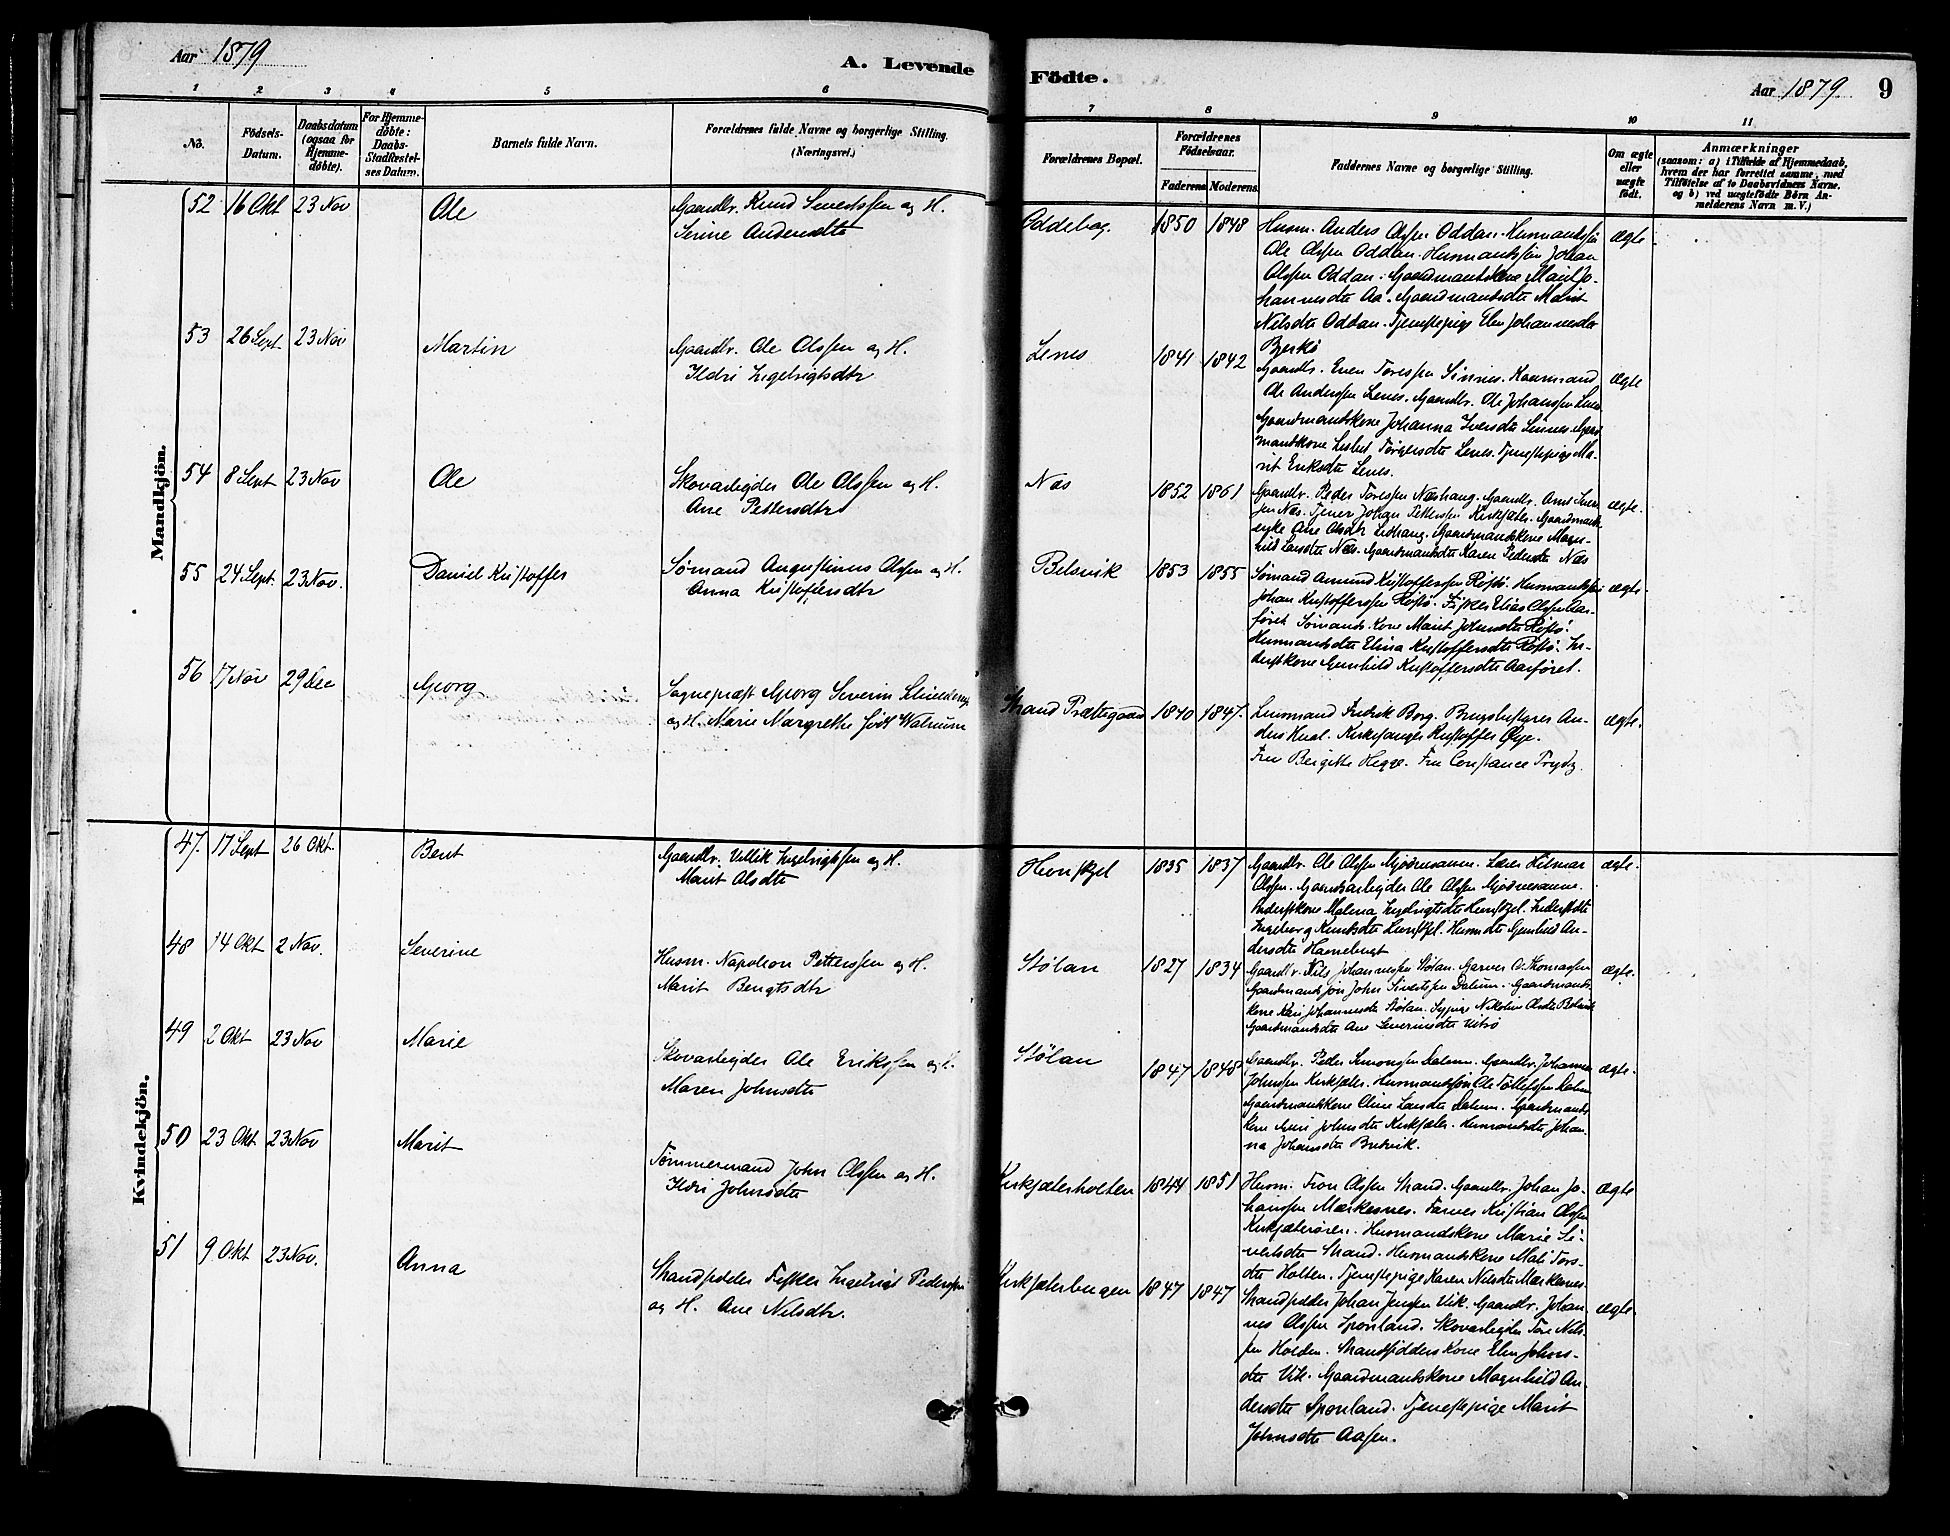 Aar 1879
A. Levende
Födte.
Aar 1879. 9
1 2 3 4 5 6
7 8 9 10 11
No.
Födsels-Datum.
Daabsdatum (ogsaa for Hjemme-döbte).
For Hjemme-döbte: Daabs-Stadfestel-ses Datum.
Barnets fulde Navn.
Forældrenes fulde Navne og borgerlige Stilling.
(Næringsvei.)
Forældrenes Bopæl.
Forældrenes Födselsaar.
Faderens Moderens
Faddernes Navne og borgerlige Stilling.
Om ægte eller uægte födt.
Anmærkninger
(saasom: a) i Tilfælde af Hjemmedaab,
hvem der har forrettet samme, med
Tilföielse af to Daabsvidners Navne.
og b) ved uægtefödte Börn An-
melderens Navn m. V.)
Mandkjön.
52 16 Okt 23 Nov Ole
Gaardbr. Knud Sivertssen og H.
Serine Andersdtr
Oddebog 1850 1848
Husm. Anders Olssen Oddan. Husmandssön
Ole Olssen Oddan. Husmandssön Johan
Olssen Oddan. Gaardmandskone Marit Jo-
hannesdtr Aa. Gaardmandsdtr Marit
Nilsdtr Oddan. Tjenestepige Elen Johannesdtr
Bjerkö
ægte
53 26 Sept 23 Nov Martin
Gaardbr. Ole Olssen og H.
Ildri Ingebrigtsdtr
Lenes 1841 1842
Gaardbr. Even Toressen Sinnes. Kaarmand
Ole Anderssen Lenes. Gaardbr. Ole Johanssen Lenes
Gaardmandskone Johanna Iversdtr Sinnes. Gaard-
mandskone Lisbet Törgersdtr Lenes. Tjenestepige Ma-
rit Eriksdtr Lenes.
ægte
54 8 Sept 23 Nov Ole
Skovarbeider Ole Olssen og H.
Ane Pettersdtr
Næs 1852 1861
Gaardbr. Peder Toressen Næshaug. Gaardbr. Arnt Iver-
sen Næs. Tjener Johan Petterssen Kirksæter. Gaardmands-
enke Ane Olsdtr Lidhaug. Gaardmandskone Magn-
hild Larsdtr Næs. Gaardmandsdtr Karen Pedersdtr Næs
ægte.
55 24 Sept. 23 Nov. Daniel Kristoffer
Sømand Augustinus Olssen og H.
Anna Kristoffersdtr
Belsvik 1853 1855
Sømand Amund Kristofferssen Rostö. Husmandssön
Johan Kristofferssen Rostö. Fisker Elias Olssen Aar-
föret. Sømands Kone Marit Johnsdtr Rostö.
Husmandsdtr Elina Kristoffersdtr Rostö. In-
derstkone Gunhild Kristoffersdtr Aarföret.
ægte.
56 17 Nov 29 Dec Georg
Sognepræst Georg Severin Schielderup
og H. Marie Margrethe født Walnum
Strand Præstegaard 1840 1847.
Lensmand Fredrik Borg. Brugsbestyrer An-
ders Kual. Kirkesanger Kristoffer Øye.
Fru Bergitte Hegge. Fru Constance Trydz.
ægte.
Kvindekjön.
47. 17 Sept 26 Okt. Berit
Gaardbr. Ullik Ingebrigtssen og H.
Marit Olsdtr
Hernskjel 1835 1837
Gaardbr. Ole Olssen Mjösnesaunn. Lærer Hilmar
Olssen. Gaardsarbeider Ole Olssen Mjösnesaunn.
Inderstkone Malena Ingebrigtsdtr
Ingeborg Knudsdtr Husmdtr Gunhild An-
dersdtr
ægte.
48 14 Okt 2 Nov. Severine
Husm. Napoleon Petterssen og H.
Marit Bengtsdtr
Stölan 1827 1834
Gaardbr. Nils Johannessen Stölan. Garver O. Thomassen
Gaardmandssön John Sivertssen Dalum. Gaardmands-
kone Kari Johannesdtr Stölan. Sypige Nikoline Olsdtr Belsvik
Gaardmandsdtr Ane Severinsdtr Vitsö
ægte.
49 2 Okt 23 Nov Marie
Skovarbeider Ole Erikssen og H.
Maren Johnsdtr
Stölan 1847 1848
Gaardbr. Peder Simonssen Dalum. Gaardbr. Johannes
Johnssen Kirksæter. Husmandssön Ole Tollefssen Dalum
Gaardmandskone Eline Larsdtr Dalum. Gaardmands-
kone Guri Johnsdtr Kirksæter. Husmandsdtr Johan-
na Johansdtr Bredvik.
ægte.
50 23 Okt 23 Nov Marit
Tömmermand John Olssen og H.
Ildri Johnsdtr
Kirksæterholten 1844 1851
Husm. Tron Olssen Strand. Gaardbr. Johan Jo-
hanssen Mærkesnes. Farver Kristian Olssen
Kirksæterören. Husmandskone Marie Si-
vertsdtr Strand. Husmandskone Mali Tors-
dtr Holten. Tjenestepige Karen Nilsdtr Mærkesnes
ægte
51 9 Okt 23 Nov. Anna
Strandsidder Fisker Ingebrigt Pederssen
og H. Ane Nilsdtr.
Kirksæterbugen 1847 1847
Strandsidder Johan Jenssen Vik. Gaardbr. Johan-
nes Olssen Sponland. Skovarbeider Tore Nils-
sen Holden. Strandsidders Kone Elen Johns-
dtr Vik. Gaardmandskone Magnhild An-
dersdtr Sponland. Tjenestepige Marit
Johnsdtr Aasen.
ægte.